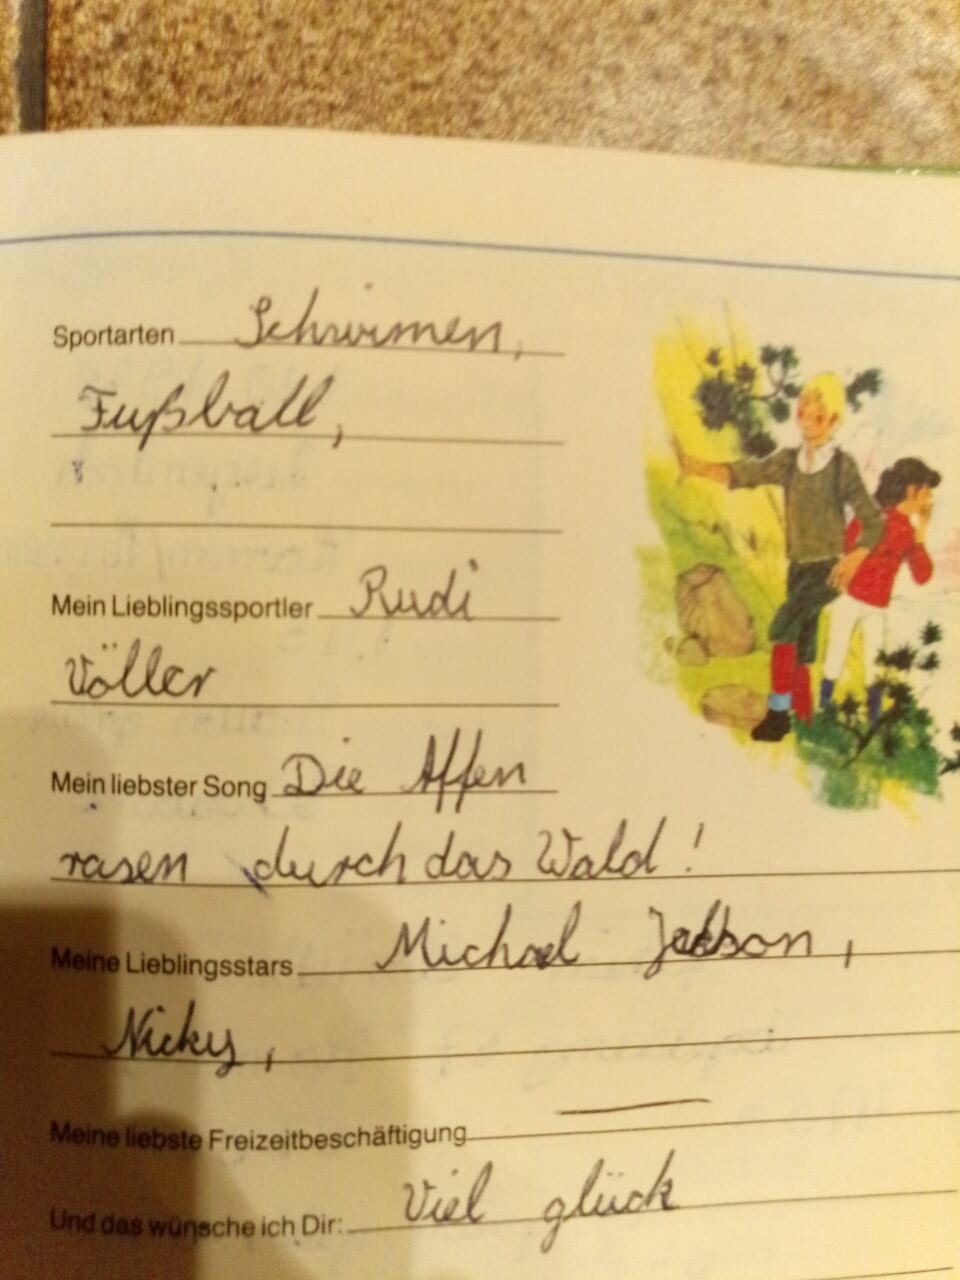 Sportarten Schwimen,
Fußball,
Mein Lieblingssportler Rudi
Völler
Mein liebster Song Die Affen
rasen durch das Wald!
Meine Lieblingsstars Michael Jackson,
Nicky,
Meine liebste Freizeitbeschäftigung
Und das wünsche ich Dir: Viel glück